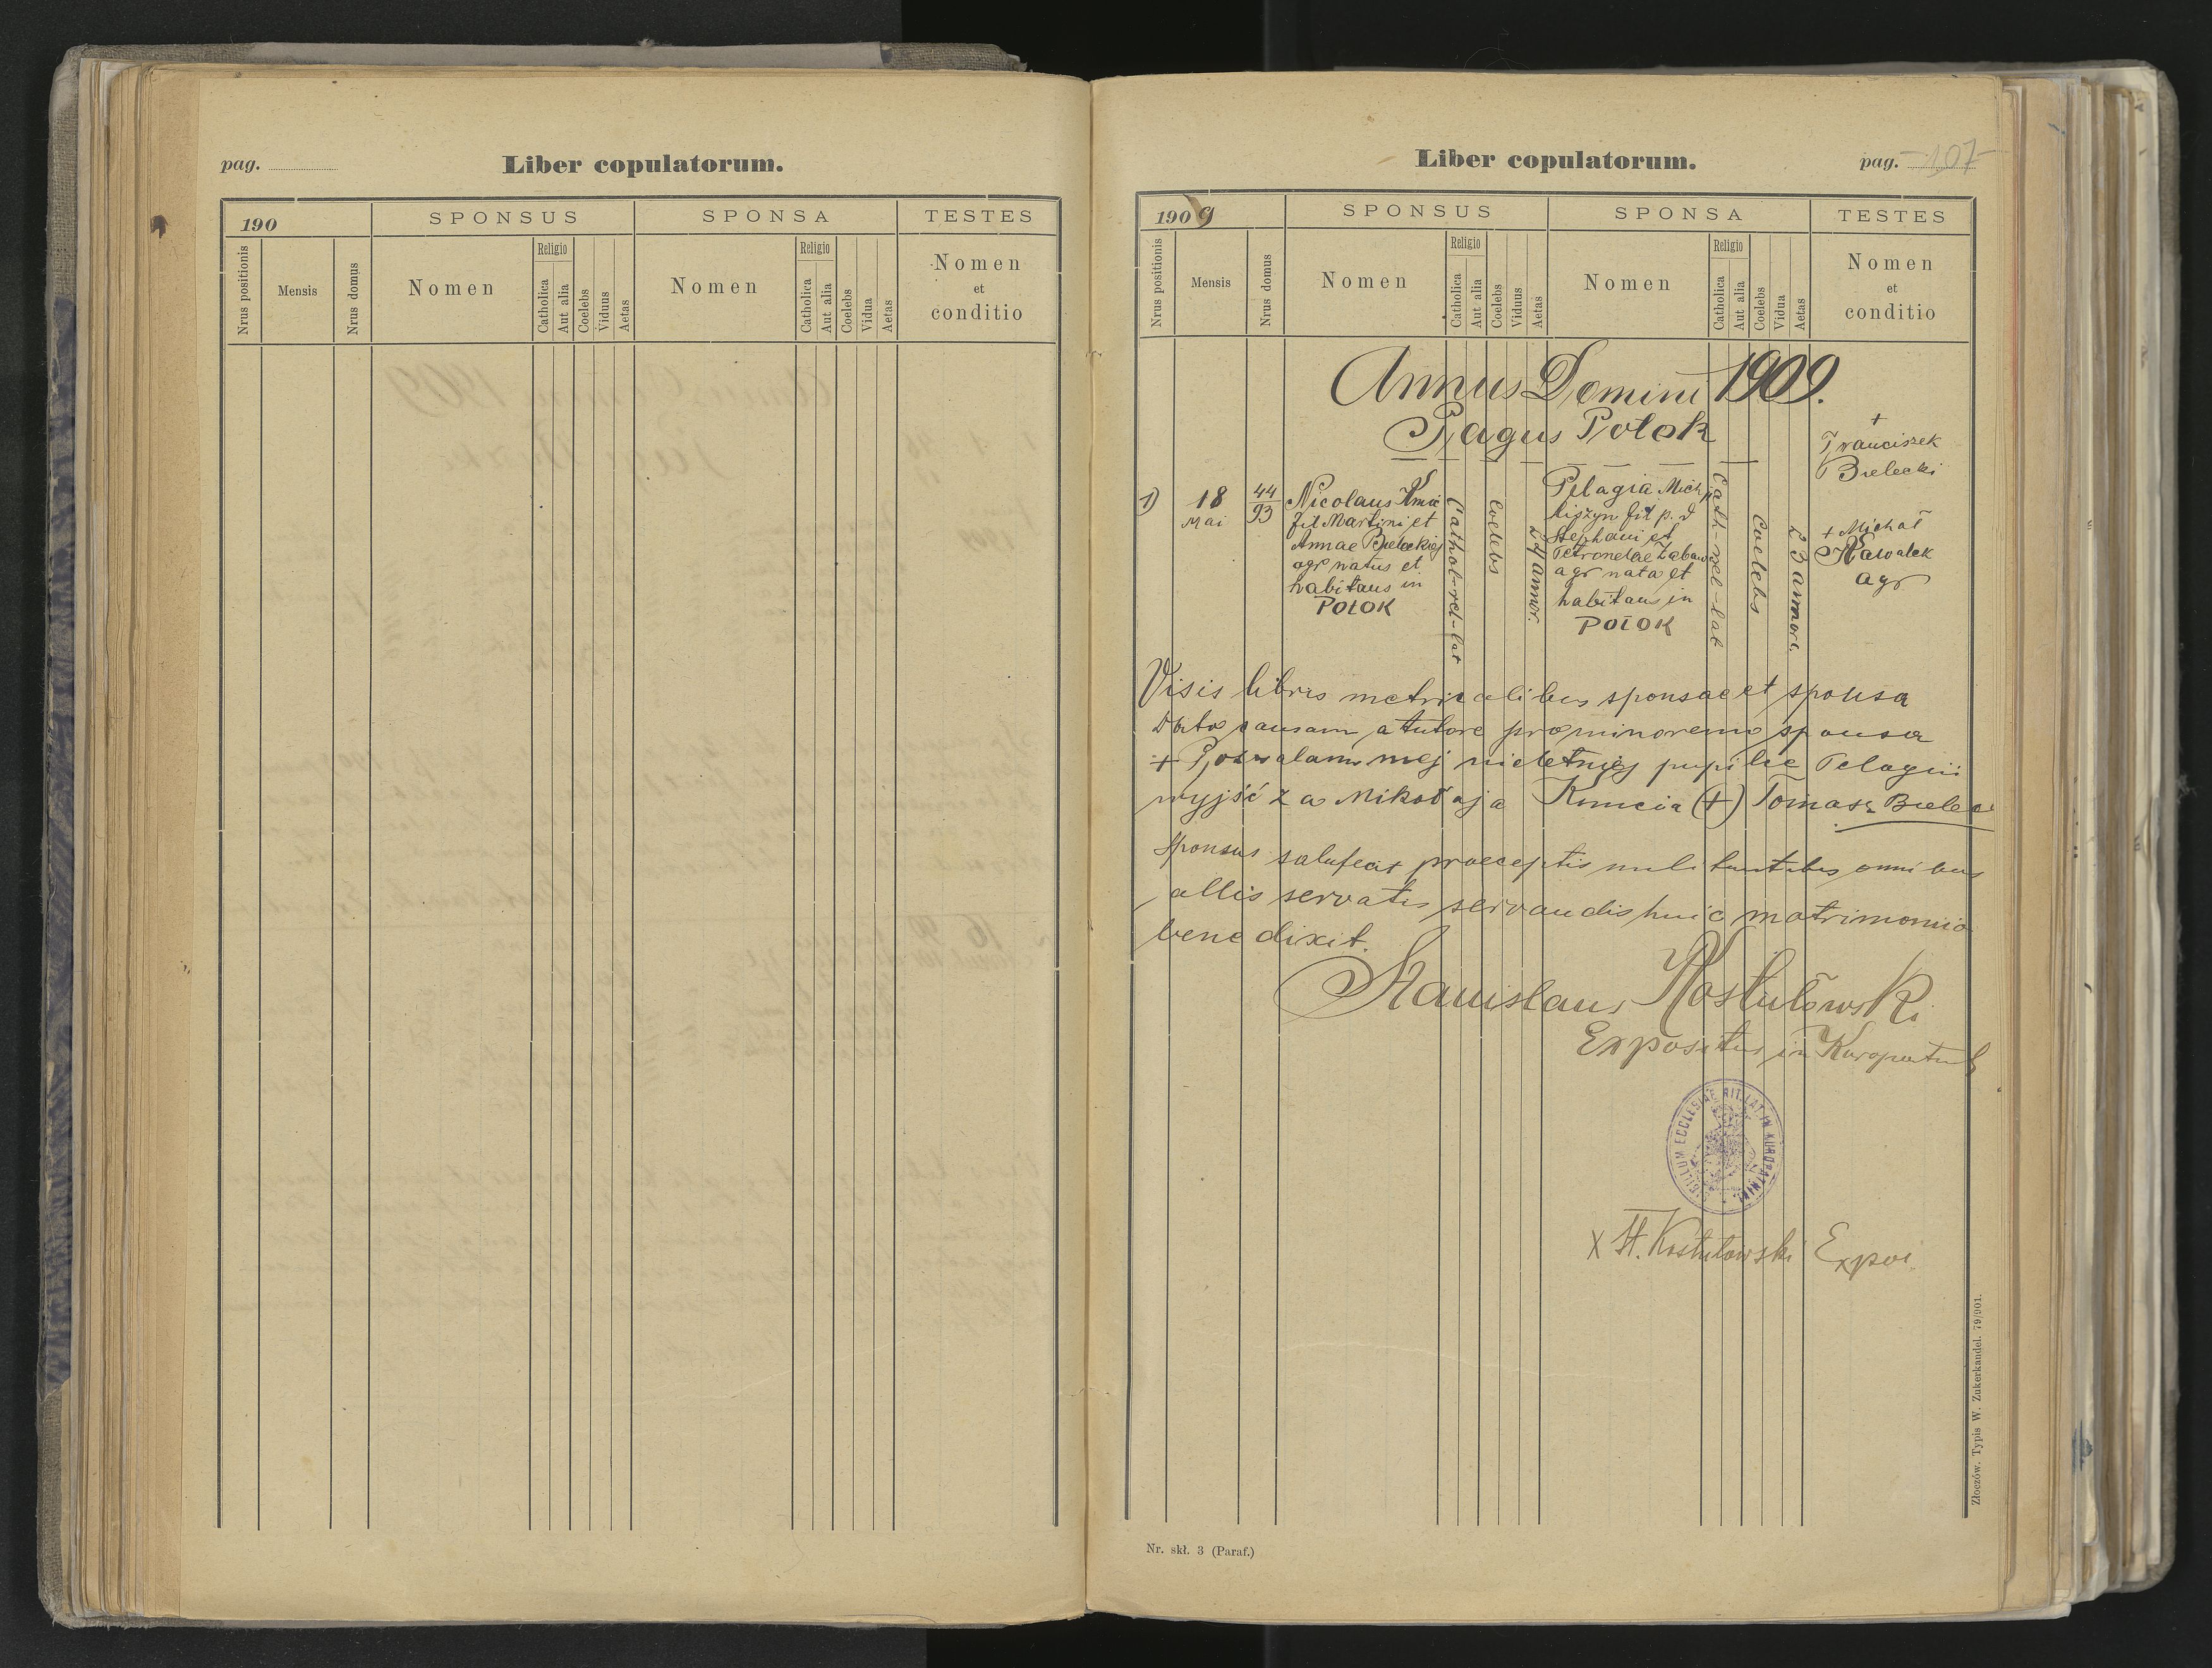 pag.
Liber copulatorum.
190
SPONSUS
SPONSA
TESTES
Nrus positionis
Mensis
Nrus domus
Nomen
Religio
Catholica
Aut alia
Coelebs
Viduus
Aetas
Nomen
Religio
Catholica
Aut alia
Coelebs
Vidua
Aetas
Nomen
et
conditio
Liber copulatorum.
pag. 107
1909
SPONSUS
SPONSA
TESTES
Nrus positionis
Mensis
Nrus domus
Nomen
Religio
Catholica
Aut alia
Coelebs
Viduus
Aetas
Nomen
Religio
Catholica
Aut alia
Coelebs
Vidua
Aetas
Nomen
et
conditio
Annus Domini 1909.
Pagus Potok
1)
18
Mai
44
93
Nicolaus Kmić
fil Martini et
Annae Bieleckiej
agr natus et
habitans in
POTOK
Cathol-rel-lat
Coelebs
24 annor.
Pelagia Mich
liszyn fil p. d
Stephani et
Petronelae
agr nata et
habitans in
POTOK
Cath-rel-lat
Coelebs
23 annor.
+
Franciszek
Bielecki
+ Michał
Kawałek
agr
Visis libris metricalibus sponsae et sponsa
a tutore pro minorem sponsa
+ Pozwalam mej nieletniej pupilce Pelagii
wyjść za Mikołaja Kmicia (+) Tomasz
Sponsus praeceptis omnibus
allis servatis servandis huic matrimonio
benedixit.
Stanislaus Kostułowski
Expositus in
SIGILLUM ECCLESIAE RIT. LAT. IN KUROPATNIKI
X St. Kostułowski Expoz.
Nr. skł. 3 (Paraf.)
Złoczów. Typis W. Zukerkandel. 79/901.